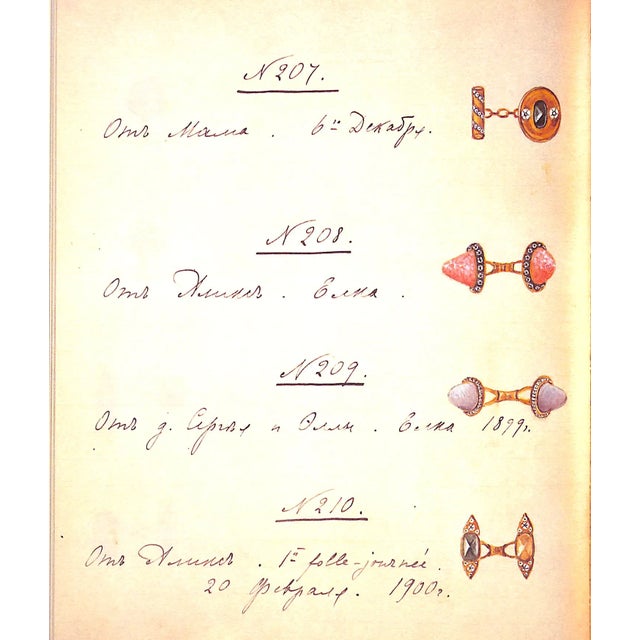 N 207.
Отъ Мама . 6го Декабря.
N 208.
Отъ Аликсъ . Елка .
N 209.
Отъ д. Сергѣя и Эллы . Елка 1899г.
N 210.
Отъ Аликсъ . 1re folle-journée.
20 Февраля. 1900г.